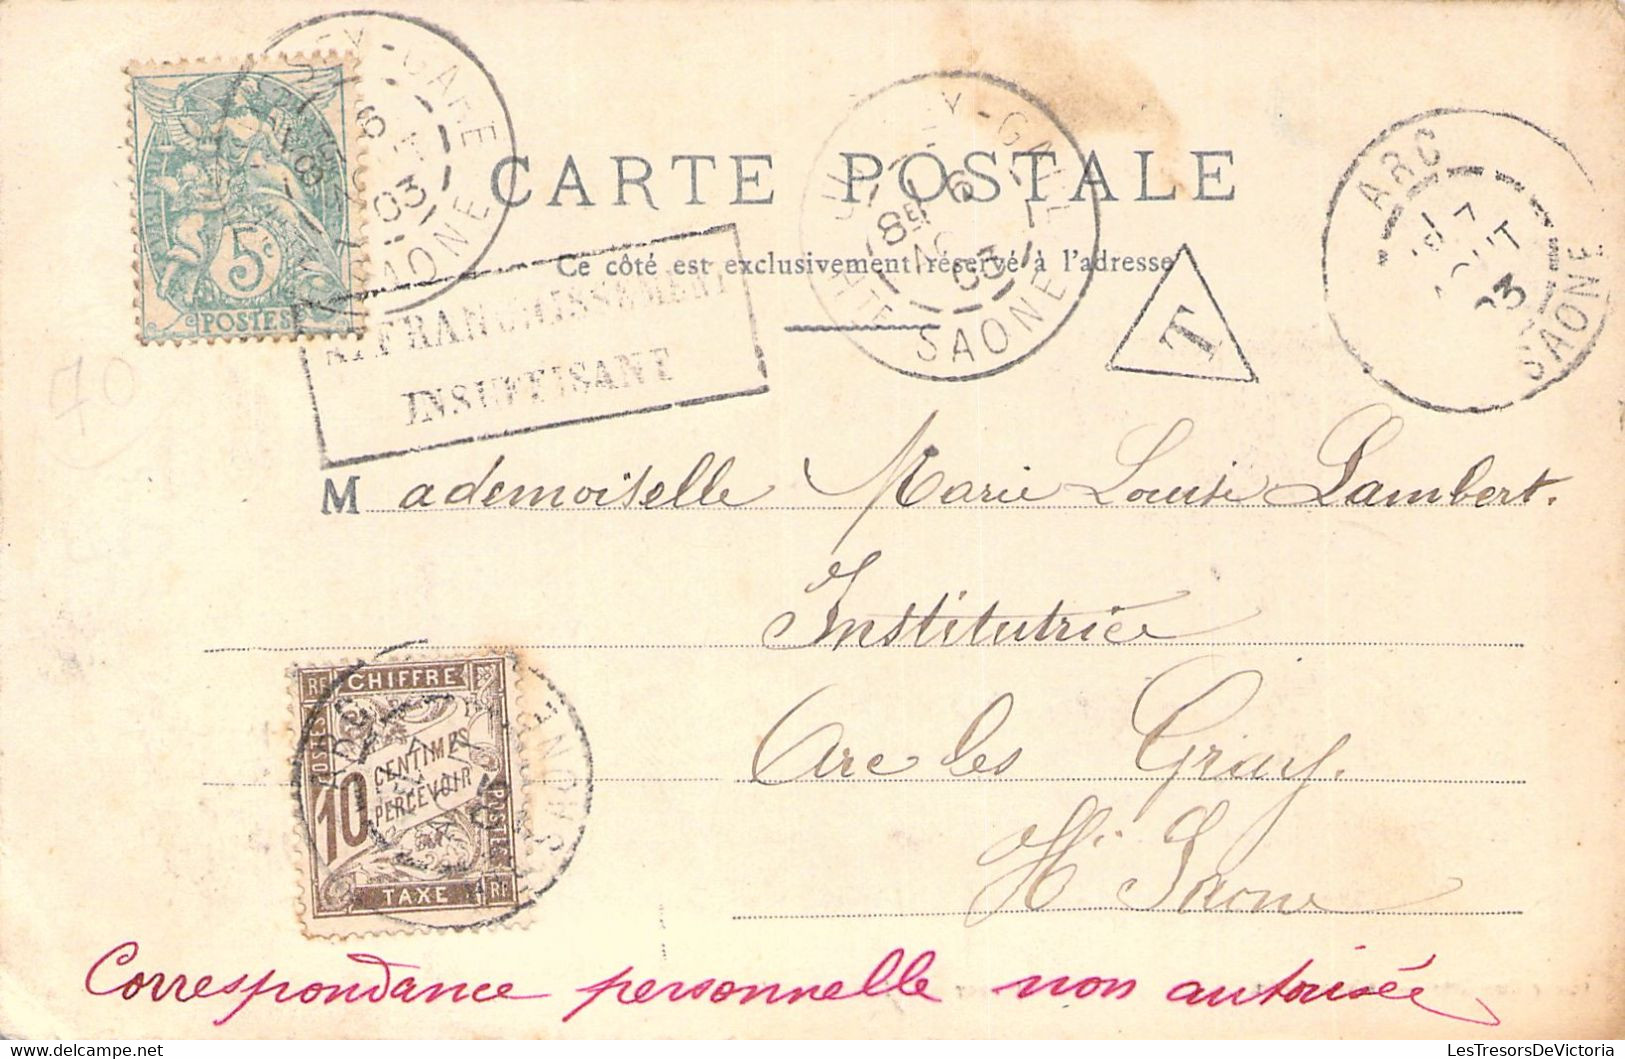 CARTE POSTALE
Ce côté est exclusivement réservé à l'adresse
5c
POSTES
GARE
6
03
SAONE
AFFRANCHISSEMENT
INSUFFISANT
GARE
8E
6
03
SAONE
T
ARC
17
03
SAONE
70
Mademoiselle Marie Louise Lambert.
Institutrice
Arc les Gray.
Hte Saone
RF CHIFFRE
POSTES
10 CENTIMES
À
PERCEVOIR
POSTES
TAXE RF
ARC
Correspondance personnelle non autorisée
LesTresorsDeVictoria